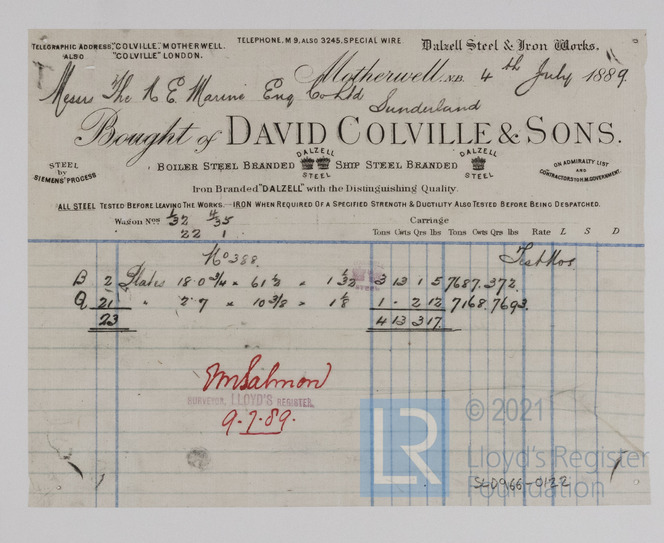 TELEGRAPHIC ADDRESS, "COLVILLE", MOTHERWELL.
ALSO "COLVILLE" LONDON.
TELEPHONE. M 9, ALSO 3245, SPECIAL WIRE
Dalzell Steel & Iron Works.
Motherwell, N.B. 4th July 1889.
Messrs The N E Marine Eng Co Ltd
Sunderland
Bought of DAVID COLVILLE & SONS.
STEEL by SIEMENS' PROCESS
BOILER STEEL BRANDED DALZELL STEEL SHIP STEEL BRANDED DALZELL STEEL
ON ADMIRALTY LIST AND CONTRACTORS TO H.M. GOVERNMENT.
Iron Branded "DALZELL" with the Distinguishing Quality.
ALL STEEL TESTED BEFORE LEAVING THE WORKS. — IRON WHEN REQUIRED OF A SPECIFIED STRENGTH & DUCTILITY ALSO TESTED BEFORE BEING DESPATCHED.
Wagon Nos 1/32 4/35
22 1
Carriage
Tons Cwts Qrs lbs Tons Cwts Qrs lbs Rate L S D
No 388.
Test Nos
B 2 Plates 18.0 3/4 × 61 1/2 × 1 1/32 3 13 1 5 7687. 372.
Q 21 " 2.7 × 10 3/8 × 1 1/8 1 - 2 12 7168. 7693.
23 4 13 3 17
Wm Salmon
SURVEYOR, LLOYD'S REGISTER.
9.7.89.
LR
© 2021
Lloyd's Register
Foundation
SLD966-0122